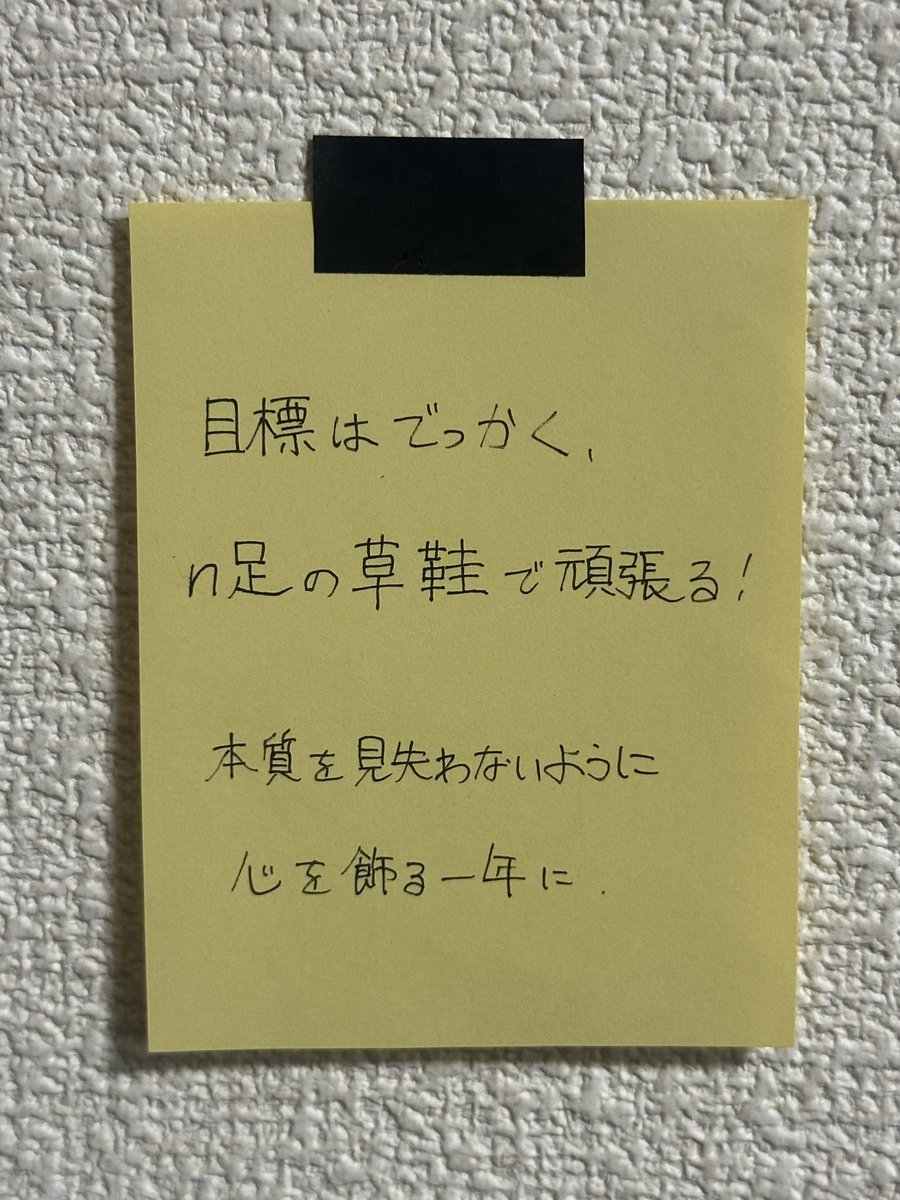 目標はでっかく、
n足の草鞋で頑張る!
本質を見失わないように
心を飾る一年に.